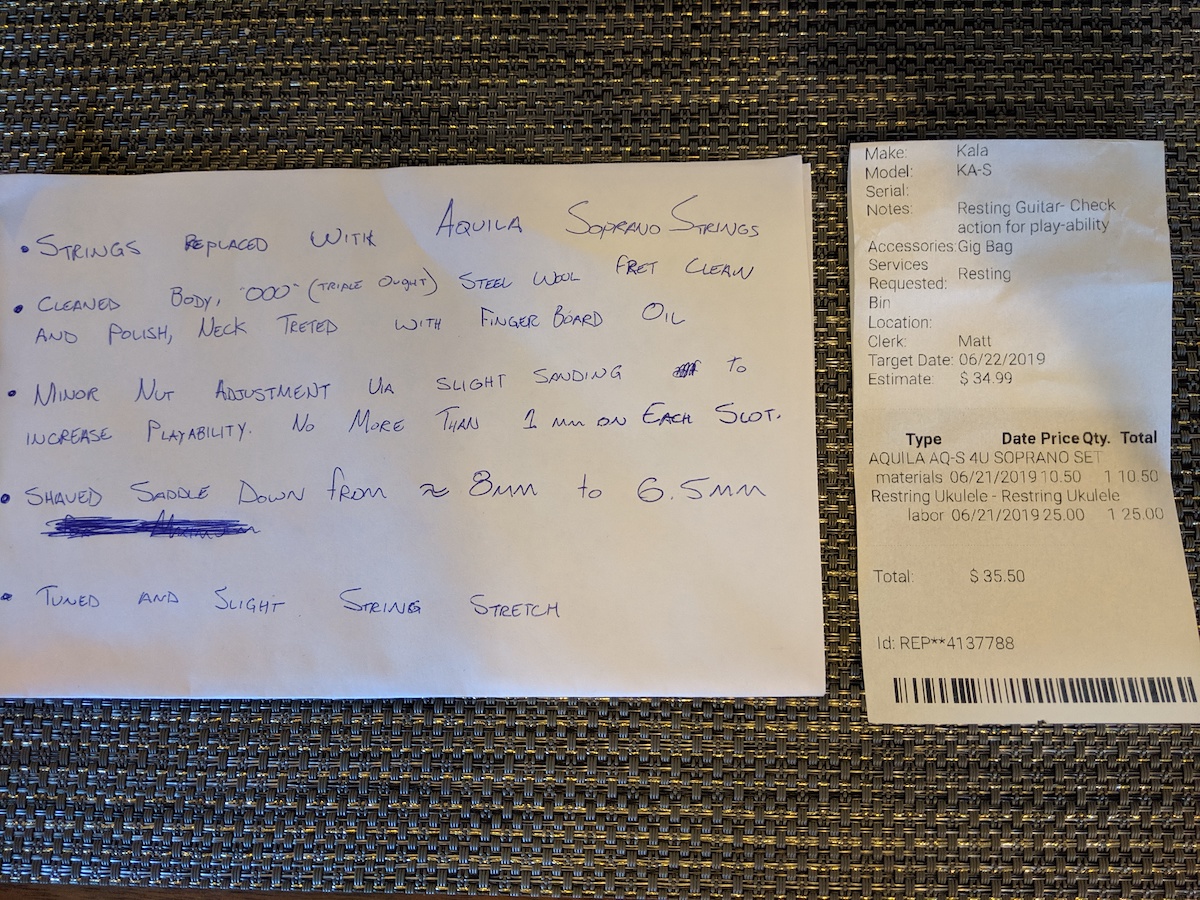 • STRINGS REPLACED WITH AQUILA SOPRANO STRINGS
• CLEANED BODY, "OOO" (TRIPLE OUGHT) STEEL WOOL FRET CLEAN
AND POLISH, NECK TRETED WITH FINGER BOARD OIL
• MINOR NUT ADJUSTMENT VIA SLIGHT SANDING TO
INCREASE PLAYABILITY. NO MORE THAN 1 MM ON EACH SLOT.
• SHAVED SADDLE DOWN FROM ≈ 8MM to 6.5MM
• TUNED AND SLIGHT STRING STRETCH
Make: Kala
Model: KA-S
Serial:
Notes: Resting Guitar- Check
action for play-ability
Accessories: Gig Bag
Services
Requested: Resting
Bin
Location:
Clerk: Matt
Target Date: 06/22/2019
Estimate: $ 34.99
Type Date Price Qty. Total
AQUILA AQ-S 4U SOPRANO SET
materials 06/21/2019 10.50 1 10.50
Restring Ukulele - Restring Ukulele
labor 06/21/2019 25.00 1 25.00
Total: $ 35.50
Id: REP**4137788